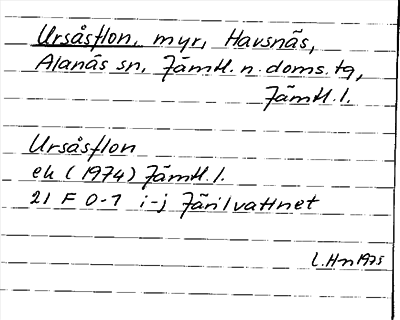 Ursåsflon, myr, Havsnäs,
Alanäs sn, Jämtl. n. doms. tg,
Jämtl. l.
Ursåsflon
ek (1974) Jämtl. l.
21 F 0-1 i-j Järilvattnet
L.Hm 1975